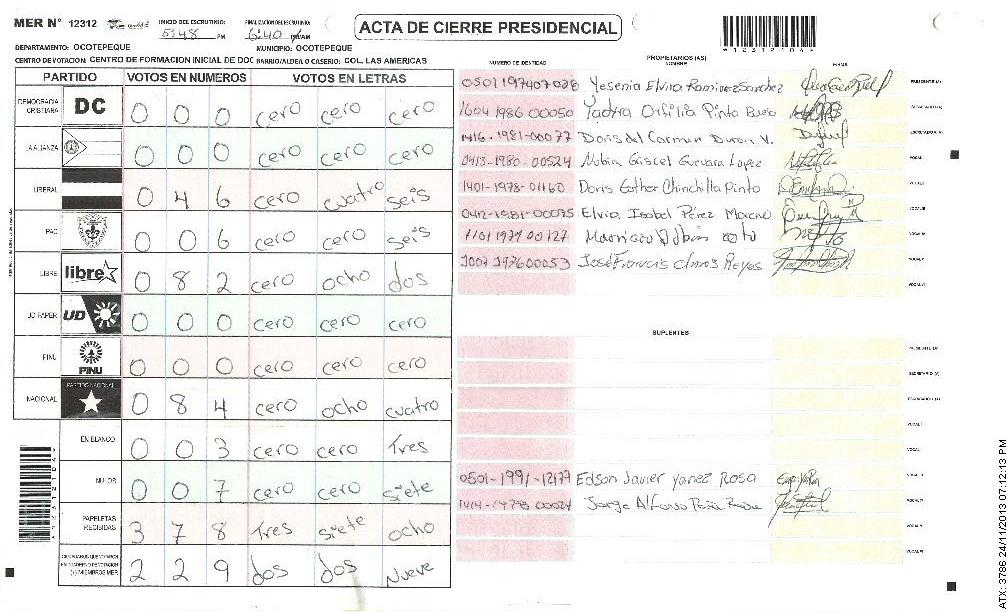 MER N° 12312
INICIO DEL ESCRUTINIO: 5:48 PM
FINALIZACION DEL ESCRUTINIO: 6:40 PM/AM
ACTA DE CIERRE PRESIDENCIAL
DEPARTAMENTO: OCOTEPEQUE MUNICIPIO: OCOTEPEQUE
CENTRO DE VOTACION: CENTRO DE FORMACION INICIAL DE DOC BARRIO/ALDEA O CASERIO: COL. LAS AMERICAS
PARTIDO VOTOS EN NUMEROS VOTOS EN LETRAS
DEMOCRACIA CRISTIANA DC 0 0 0 cero cero cero
LA ALIANZA 0 0 0 cero cero cero
LIBERAL 0 4 6 cero cuatro seis
PAC 0 0 6 cero cero seis
LIBRE libre 0 8 2 cero ocho dos
UD FAPER UD 0 0 0 cero cero cero
PINU PINU 0 0 0 cero cero cero
NACIONAL PARTIDO NACIONAL 0 8 4 cero ocho cuatro
EN BLANCO 0 0 3 cero cero Tres
NULOS 0 0 7 cero cero siete
PAPELETAS RECIBIDAS 3 7 8 Tres siete ocho
CIUDADANOS QUE VOTARON EN CUADERNO DE VOTACION (+) MIEMBROS MER 2 2 9 dos dos Nueve
PROPIETARIOS (AS)
NUMERO DE IDENTIDAD NOMBRE FIRMA
Yesenia Elvira Ramirez Sanchez PRESIDENTE (A)
1604 1986 00050 Yadira Orfilia Pinto Bueso SECRETARIO (A)
1416-1981-00077 Doris del Carmen Duron V. ESCRUTADOR (A)
0413-1980-00524 Nubia Gisocel Guevara Lopez VOCAL I
1401-1978-01160 Doris Esther Chinchilla Pinto VOCAL II
0412-1981-00075 Elvia Isabel Pérez VOCAL III
1101 1977 00127 VOCAL IV
José Francis Reyes VOCAL V
VOCAL VI
SUPLENTES
PRESIDENTE (A)
SECRETARIO (A)
ESCRUTADOR (A)
VOCAL I
VOCAL II
0501-1991-12177 Edson Javier Yanez Rosa VOCAL III
Jorge Alfonso VOCAL IV
VOCAL V
VOCAL VI
ATX: 3786 24/11/2013 07:12:13 PM